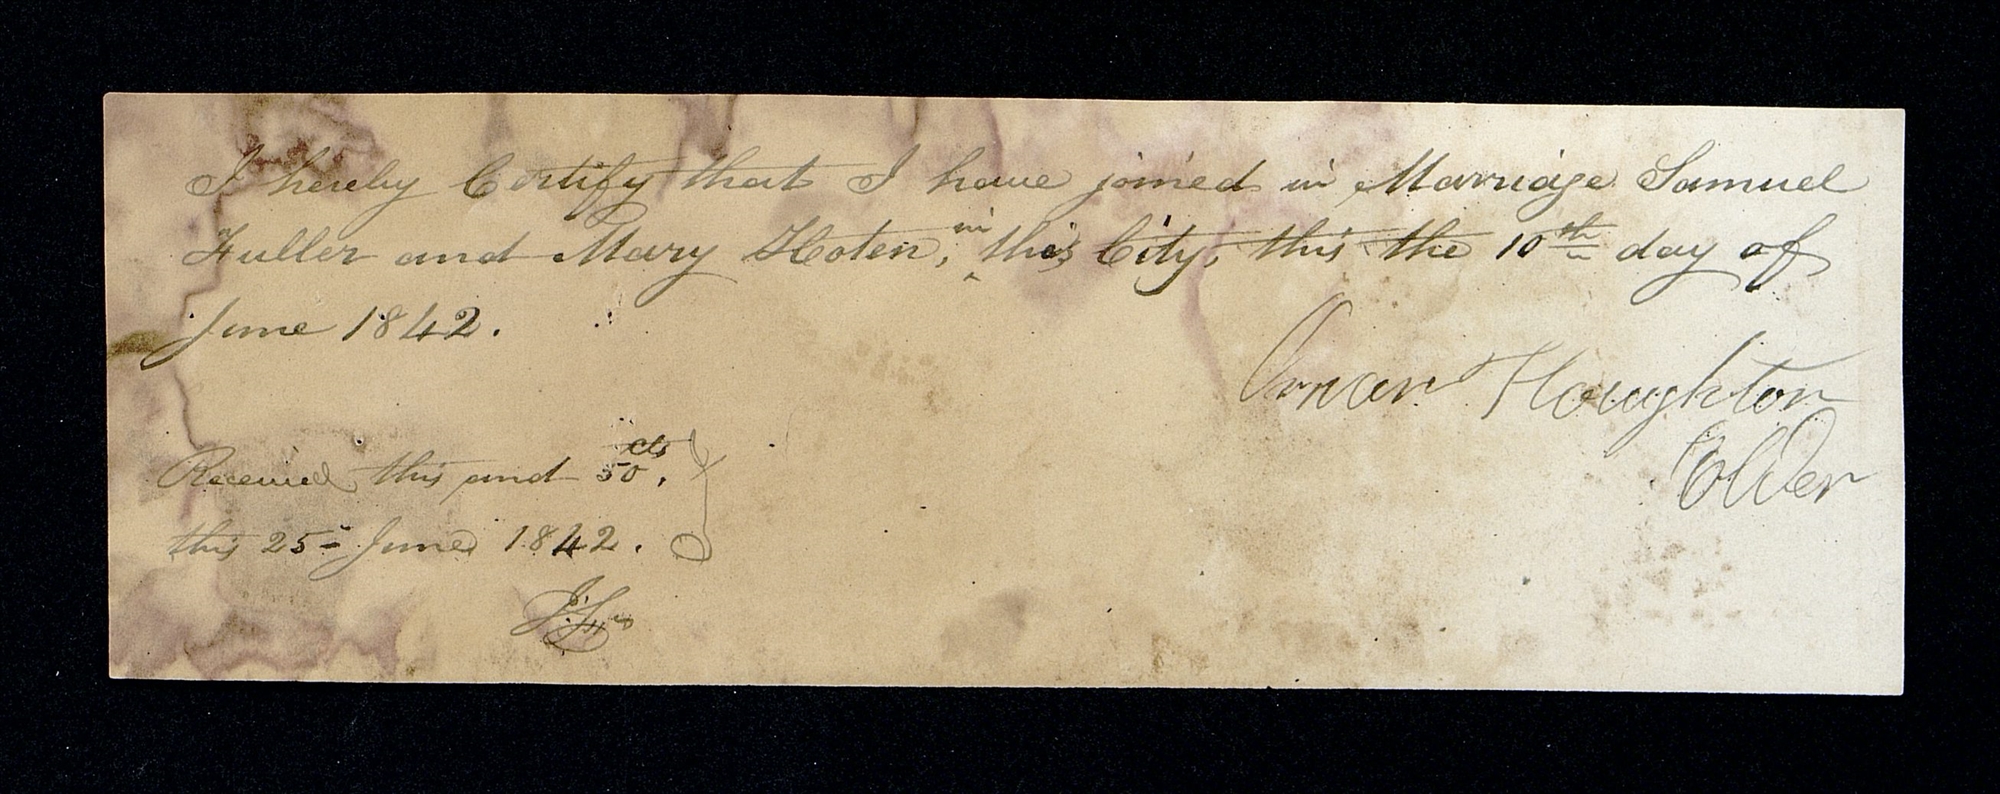 I hereby Certify that I have joined in Marriage Samuel
Fuller and Mary Hoten, in this City, this the 10th day of
June 1842.
Ornan Houghton
Elder
Received this and 50 cts.
this 25 June 1842.